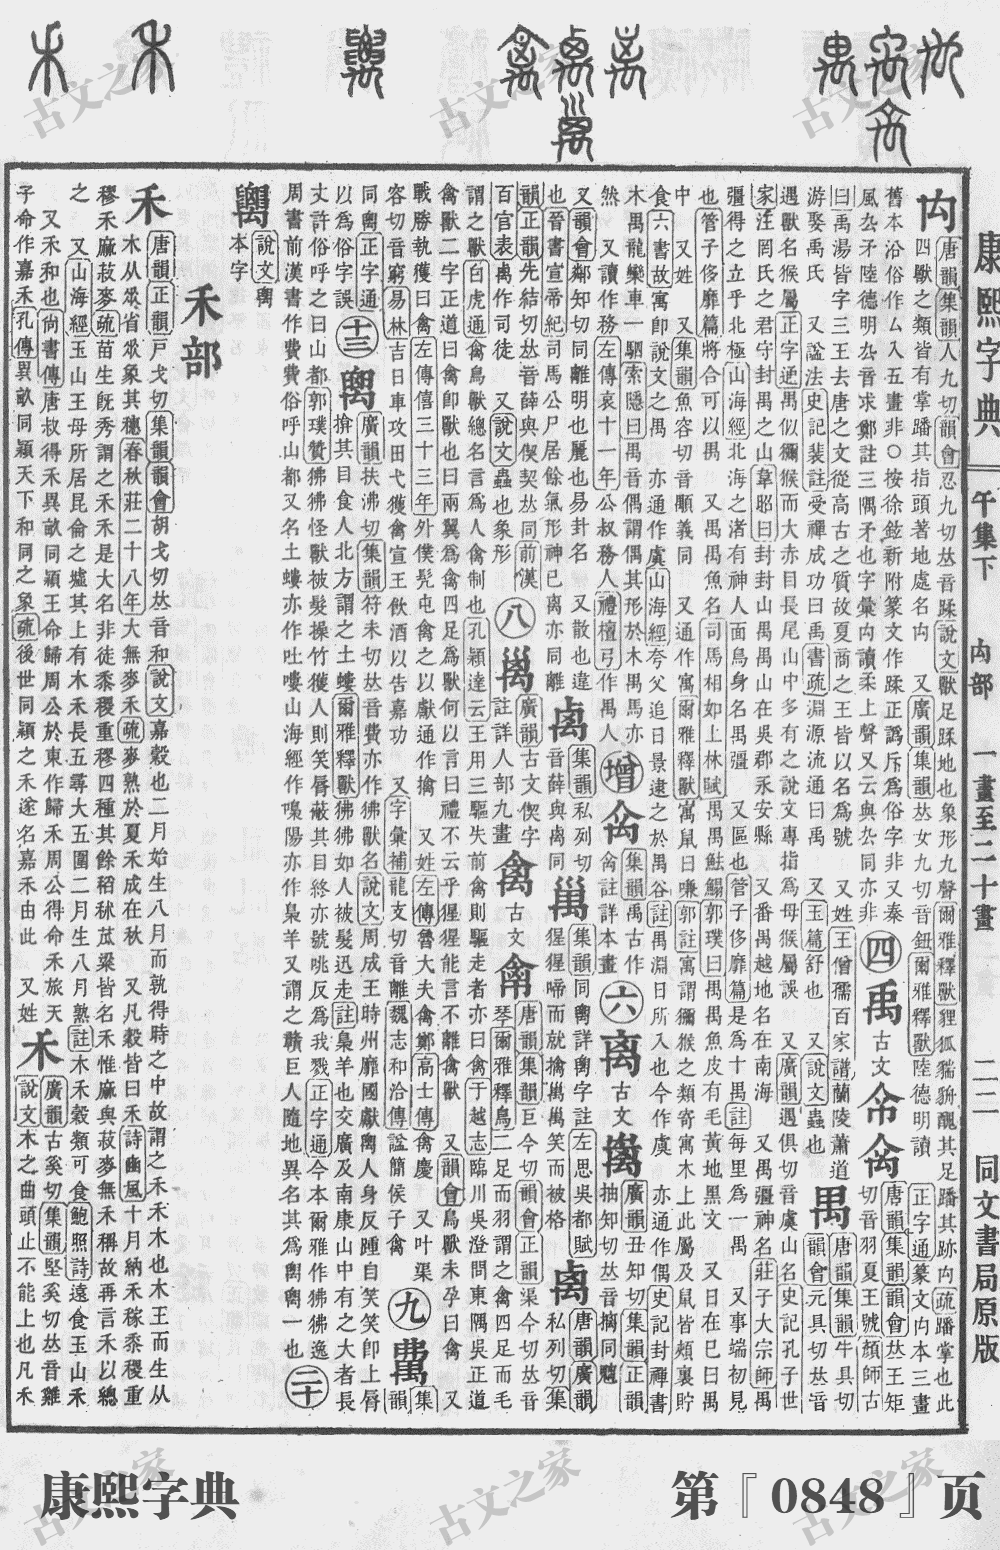 康熙字典 午集下 禸部 一畫至二十畫 二二 同文書局原版
禸
唐韻集韻人九切韻會忍九切𠀤音蹂說文獸足蹂地也象形九聲爾雅釋獸狸狐貒貈醜其足蹯其跡禸疏蹯掌也此
四獸之類皆有掌蹯其指頭著地處名禸 又廣韻集韻𠀤女九切音鈕爾雅釋獸陸德明讀 正字通篆文禸本三畫
舊本沿俗作厶入五畫非○按徐鉉新附篆文作蹂正譌斥為俗字非又秦
風厹矛陸德明厹音求鄭註三隅矛也字彙禸讀柔上聲又云與厹同亦非
四
禹
古文
㕘禽
唐韻集韻韻會𠀤王矩
切音羽夏王號顏師古
曰禹湯皆字三王去唐之文從高古之質故夏商之王皆以名為號 又姓王僧孺百家譜蘭陵蕭道
游娶禹氏 又諡法史記裴註受禪成功曰禹書疏淵源流通曰禹 又玉篇舒也 又說文蟲也
禺
唐韻集韻牛具切
韻會元具切𠀤音
遇獸名猴屬正字通禺似獼猴而大赤目長尾山中多有之說文專指為母猴屬誤 又廣韻遇俱切音虞山名史記孔子世
家汪罔氏之君守封禺之山韋昭曰封封山禺禺山在吳郡永安縣 又番禺越地名在南海 又禺彊神名莊子大宗師禺
彊得之立乎北極山海經北海之渚有神人面鳥身名禺彊 又區也管子侈靡篇是為十禺註每里為一禺 又事端初見
也管子侈靡篇將合可以禺 又禺禺魚名司馬相如上林賦禺禺魼鰨郭璞曰禺禺魚皮有毛黃地黑文 又日在巳曰禺
中 又姓 又集韻魚容切音顒義同 又通作寓爾雅釋獸寓鼠曰嗛郭註寓謂獼猴之類寄寓木上此屬及鼠皆頰裏貯
食六書故寓卽說文之禺 亦通作虞山海經夸父追日景逮之於禺谷註禺淵日所入也今作虞 亦通作偶史記封禪書
木禺龍欒車一駟索隱曰禺音偶謂偶其形於木禺馬亦
然 又讀作務左傳哀十一年公叔務人禮檀弓作禺人
增
禽
集韻禹古作
禽註詳本畫
六
离
古文
廣韻丑知切集韻正韻
抽知切𠀤音摛同魑
又韻會鄰知切同離明也麗也易卦名 又散也違
也晉書宣帝紀司馬公尸居餘氣形神已离亦同離
𥜽
集韻私列切
音薛與卨同
集韻同𥝀詳𥝀字註左思吳都賦
猩猩啼而就擒𥝀𥝀笑而被格
卨
唐韻廣韻
私列切集
韻正韻先結切𠀤音薛與偰契𠀤同前漢
百官表卨作司徒 又說文蟲也象形
八
廣韻古文偰字
註詳人部九畫
禽
古文
唐韻集韻巨今切韻會正韻渠今切𠀤音
琴爾雅釋鳥二足而羽謂之禽四足而毛
謂之獸白虎通禽鳥獸總名言為人禽制也孔穎達云王用三驅失前禽則驅走者亦曰禽于越志臨川吳澄問東隅吳正道
禽獸二字正道曰禽卽獸也曰兩翼為禽四足為獸何以言曰禮不云乎猩猩能言不離禽獸 又韻會鳥獸未孕曰禽 又
戰勝執獲曰禽左傳僖三十三年外僕髡屯禽之以獻通作擒 又姓左傳魯大夫禽鄭高士傳禽慶 又叶渠
容切音窮易林吉日車攻田弋獲禽宣王飲酒以告嘉功 又字彙補龍支切音離魏志和洽傳諡簡侯子禽
九
集韻
同𥝀正字通
以為俗字誤
十三
廣韻扶沸切集韻符未切𠀤音費亦作狒獸名說文周成王時州靡國獻𥝋人身反踵自笑笑卽上脣
揜其目食人北方謂之土螻爾雅釋獸狒狒如人被髮迅走註梟羊也交廣及南康山中有之大者長
丈許俗呼之曰山都郭璞贊狒狒怪獸被髮操竹獲人則笑脣蔽其目終亦號咷反為我戮正字通今本爾雅作狒狒逸
周書前漢書作費費俗呼山都又名土螻亦作吐嘍山海經作嘄陽亦作梟羊又謂之贛巨人隨地異名其為𥝋𥝋一也
二十
說文𥝋
本字
禾部
禾
唐韻正韻戸戈切集韻韻會胡戈切𠀤音和說文嘉穀也二月始生八月而孰得時之中故謂之禾禾木也木王而生从
木从𠂹省𠂹象其穗春秋莊二十八年大無麥禾疏麥熟於夏禾成在秋 又凡穀皆曰禾詩豳風十月納禾稼黍稷重
穋禾麻菽麥疏苗生旣秀謂之禾禾是大名非徒黍稷重穋四種其餘稻秫苽粱皆名禾惟麻與菽麥無禾稱故再言禾以總
之 又山海經玉山王母所居昆侖之墟其上有木禾長五尋大五圍二月生八月熟註木禾穀類可食鮑照詩遠食玉山禾
又禾和也尚書傳唐叔得禾異畝同穎王命歸周公於東作歸禾周公得命禾旅天
子命作嘉禾孔傳異畝同穎天下和同之象疏後世同穎之禾遂名嘉禾由此 又姓
禾
廣韻古奚切集韻堅奚切𠀤音雞
說文木之曲頭止不能上也凡禾
康熙字典
第『0848』页
古文之家
古文之家
古文之家
古文之家
古文之家
古文之家